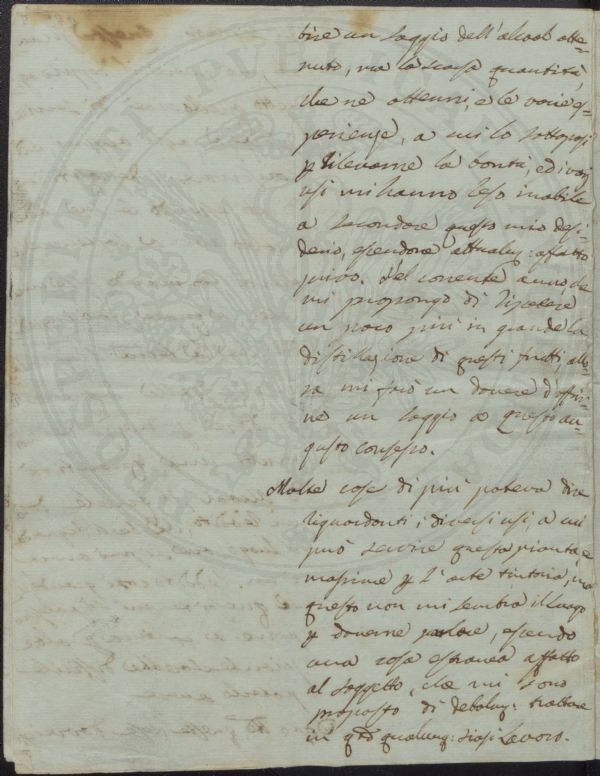 tire un saggio dell'alcool otte-
nuto, ma la scarsa quantità,
che ne ottenni, e le varie es-
perienze, a cui lo sottoposi
p rilevarne la bontà, ed i varj
usi mi hanno reso inabile
a secondare questo mio desi-
derio, essendone attualm: affatto
privo. Nel corrente anno, che
mi propongo di ripetere
un poco più in grande la
distillazione di questi frutti, allo-
ra mi farò un dovere d'offrir-
ne un saggio a questo au-
gusto consesso.
Molte cose di più poteva dire
riguardanti i diversi usi, a cui
può servire questa pianta, e
massime p l'arte tintoria, ma
questo non mi sembra il luogo
p doverne parlare, essendo
una cosa estranea affatto
al soggetto, che mi sono
proposto di debolm: trattare
in qto qualunq: siasi Lavoro.
PROSPERITATI PUBLICAE